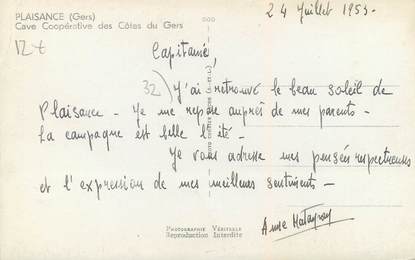 PLAISANCE (Gers)
Cave Coopérative des Côtes du Gers
24 Juillet 1953.
12 €
Capitaine,
32) J'ai retrouvé le beau soleil de
Plaisance - Je me repose auprès de mes parents -
La campagne est belle l'été -
Je vous adresse mes pensées respectueuses
et l'expression de mes meilleurs sentiments -
Anne
PHOTOGRAPHIE VÉRITABLE
Reproduction Interdite